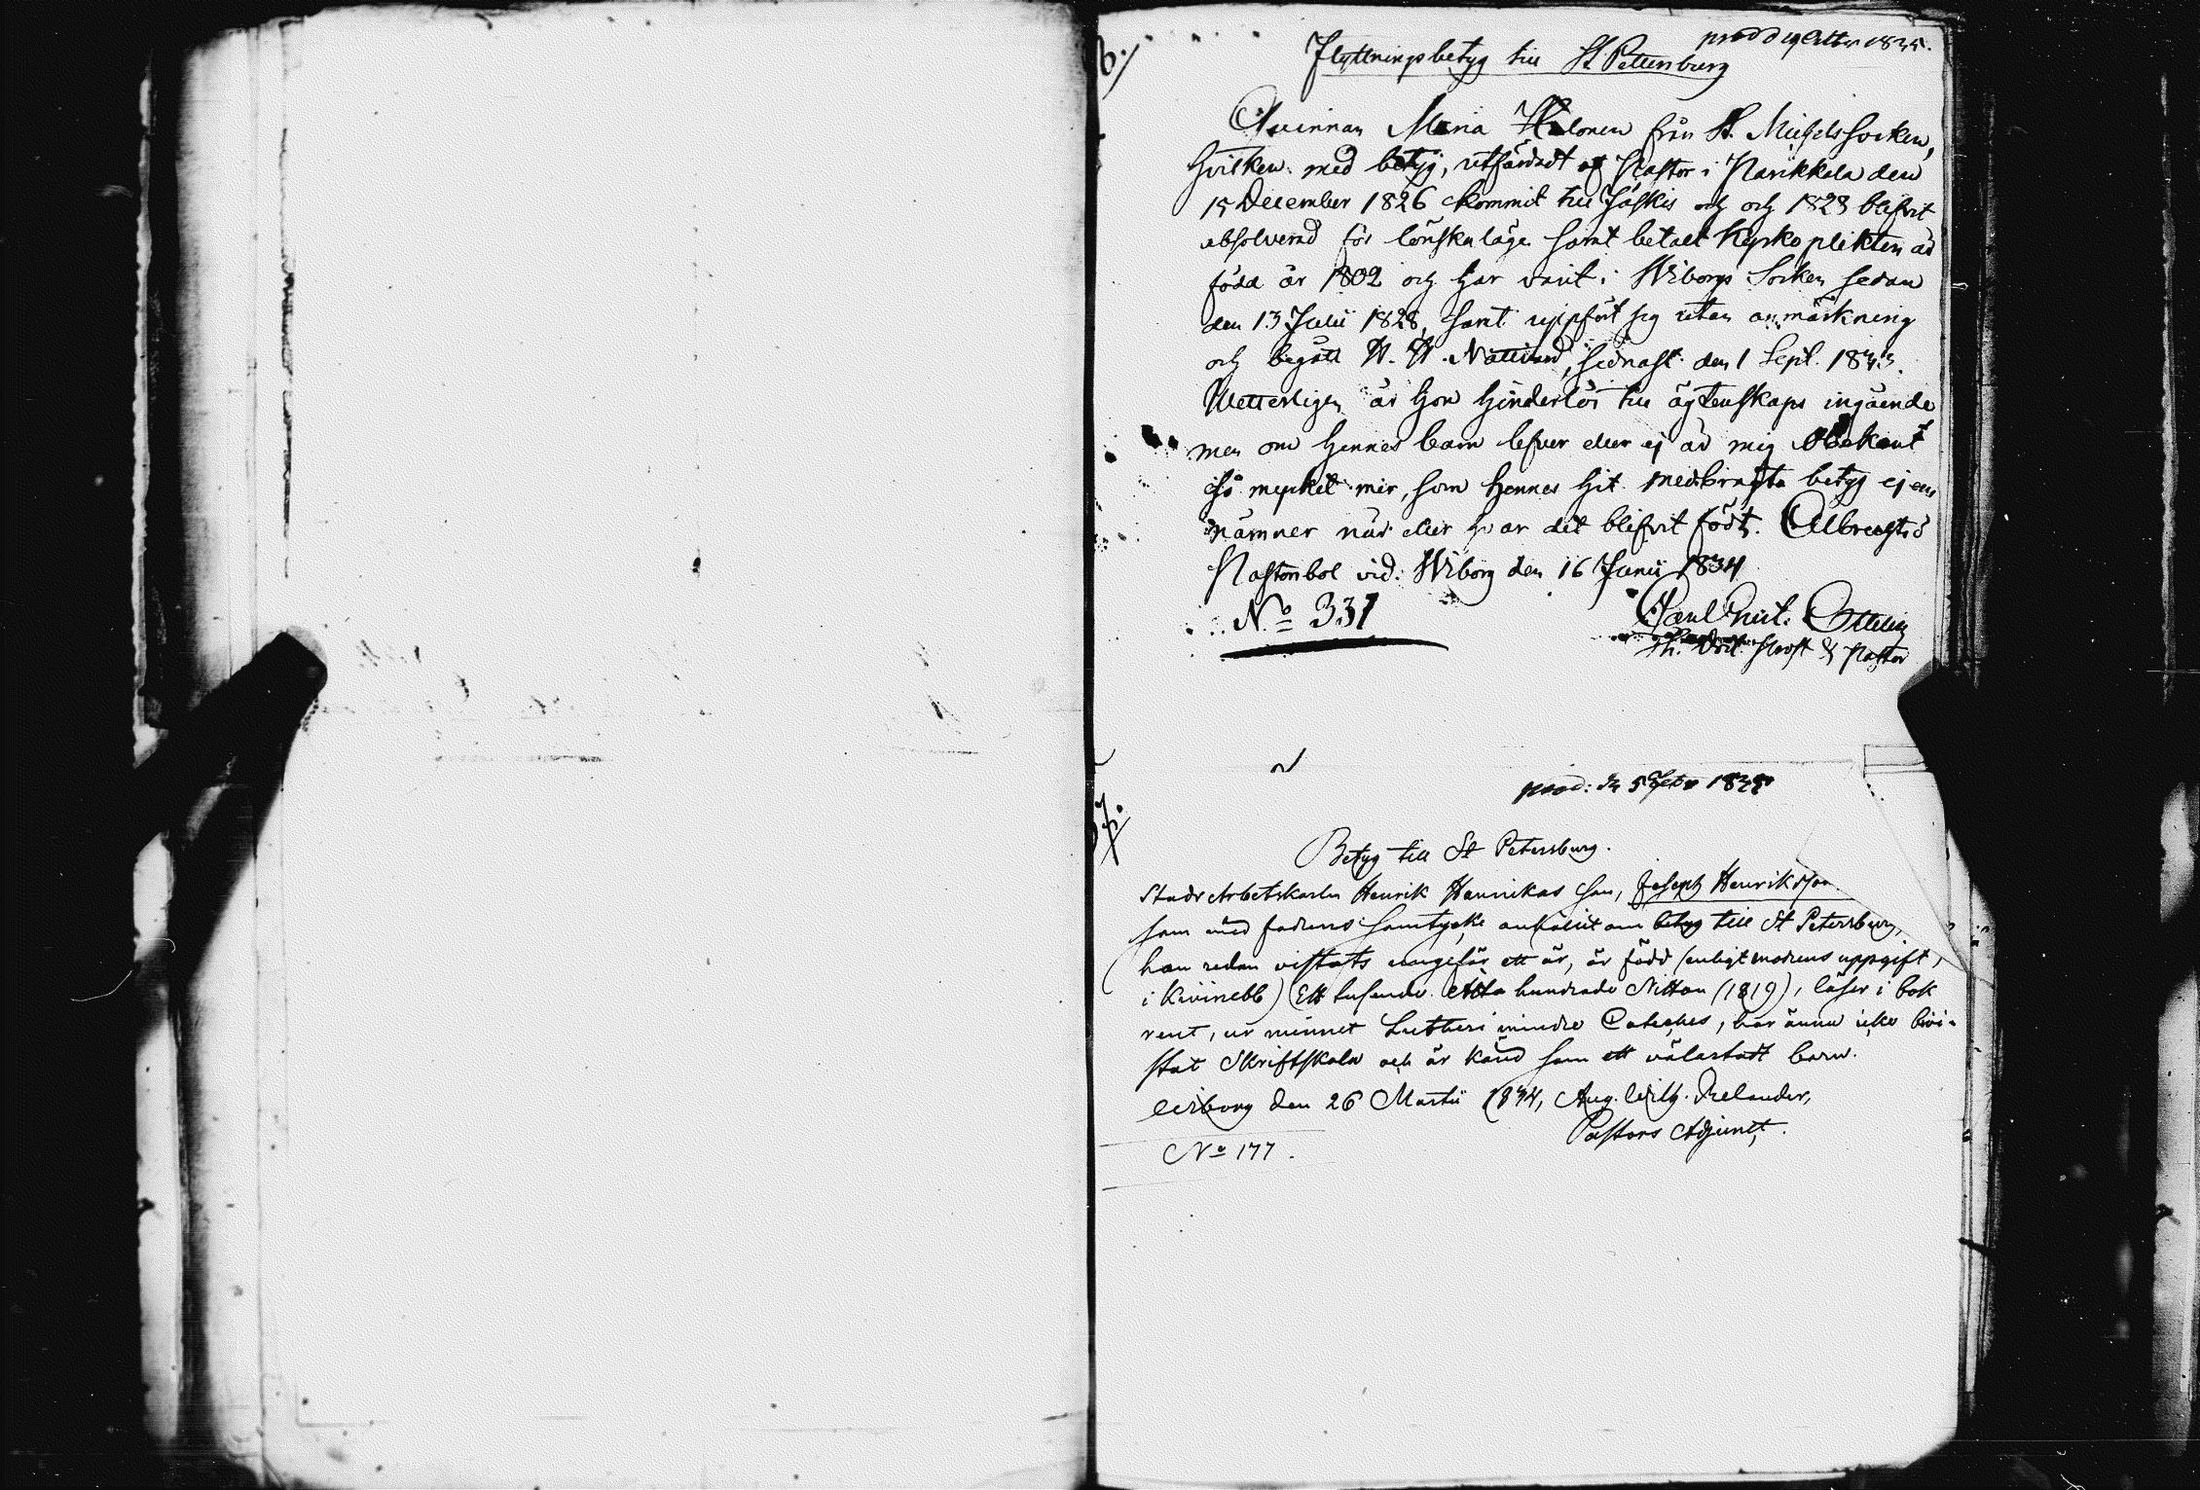 6.
prod d 19 Octbr 1835.
Flyttningsbetyg till St Pettersburg
Qvinnan Maria Halonen från St. Michels socken,
hvilken med betyg, utfärdadt af Pastor i Parikkala den
15 December 1826 kommit till Jäskis och och 1828 blifvit
absolverad för lönskaläge samt betalt Kyrko plikten är
född år 1802 och har varit i Wiborgs Socken sedan
den 13 Julii 1828, samt uppfört sig utan anmärkning
och begått H. H. Nattvard, sednast den 1 Sept. 1833.
Wetterligen är hon hinderlös till ägtenskaps ingående
men om hennes barn lefver eller ej är mig obekant
så mycket mer, som hennes hit medbragta betyg ej ens
nämner när eller hvar det blifvit födt. Albrechts
Pastorsbol vid Wiborg den 16 Junii 1834
No 331
Paul Krist. Ottelin
Prost & Pastor
7.
prod: d 5 1835
Betyg till St Petersburg.
Stads Arbetskarlen Henrik Henrikas son, Joseph Henriksson
som med fadrens samtycke anhållit om betyg till St Petersburg,
han redan vistats ungefär ett år, är född (enligt modrens uppgift,
i Kivinebb) Ett tusende Åtta hundrade Nitton (1819), läser i bok
rent, ur minnet Lutheri mindre Cateches, har ännu icke bevi-
stat Skriftskola och är känd som ett välartadt barn.
Wiborg den 26 Martii 1834, Aug. Wilh. Relander,
Pastors Adjunct.
No 177.